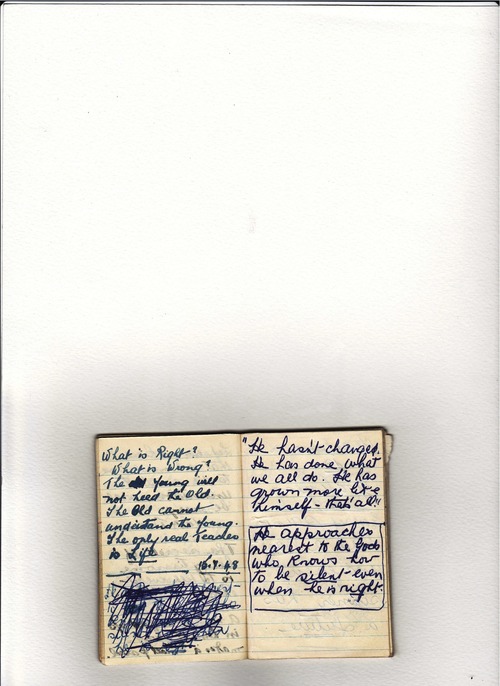 What is Right?
What is Wrong?
The Young will
not heed the Old.
The Old cannot
understand the Young.
The only real Teacher
is Life
10.9.48
"He hasn't changed.
He has done what
we all do. He has
grown more like
himself - that's all"
He approaches
nearest to the Gods
who knows how
to be silent even
when he is right.